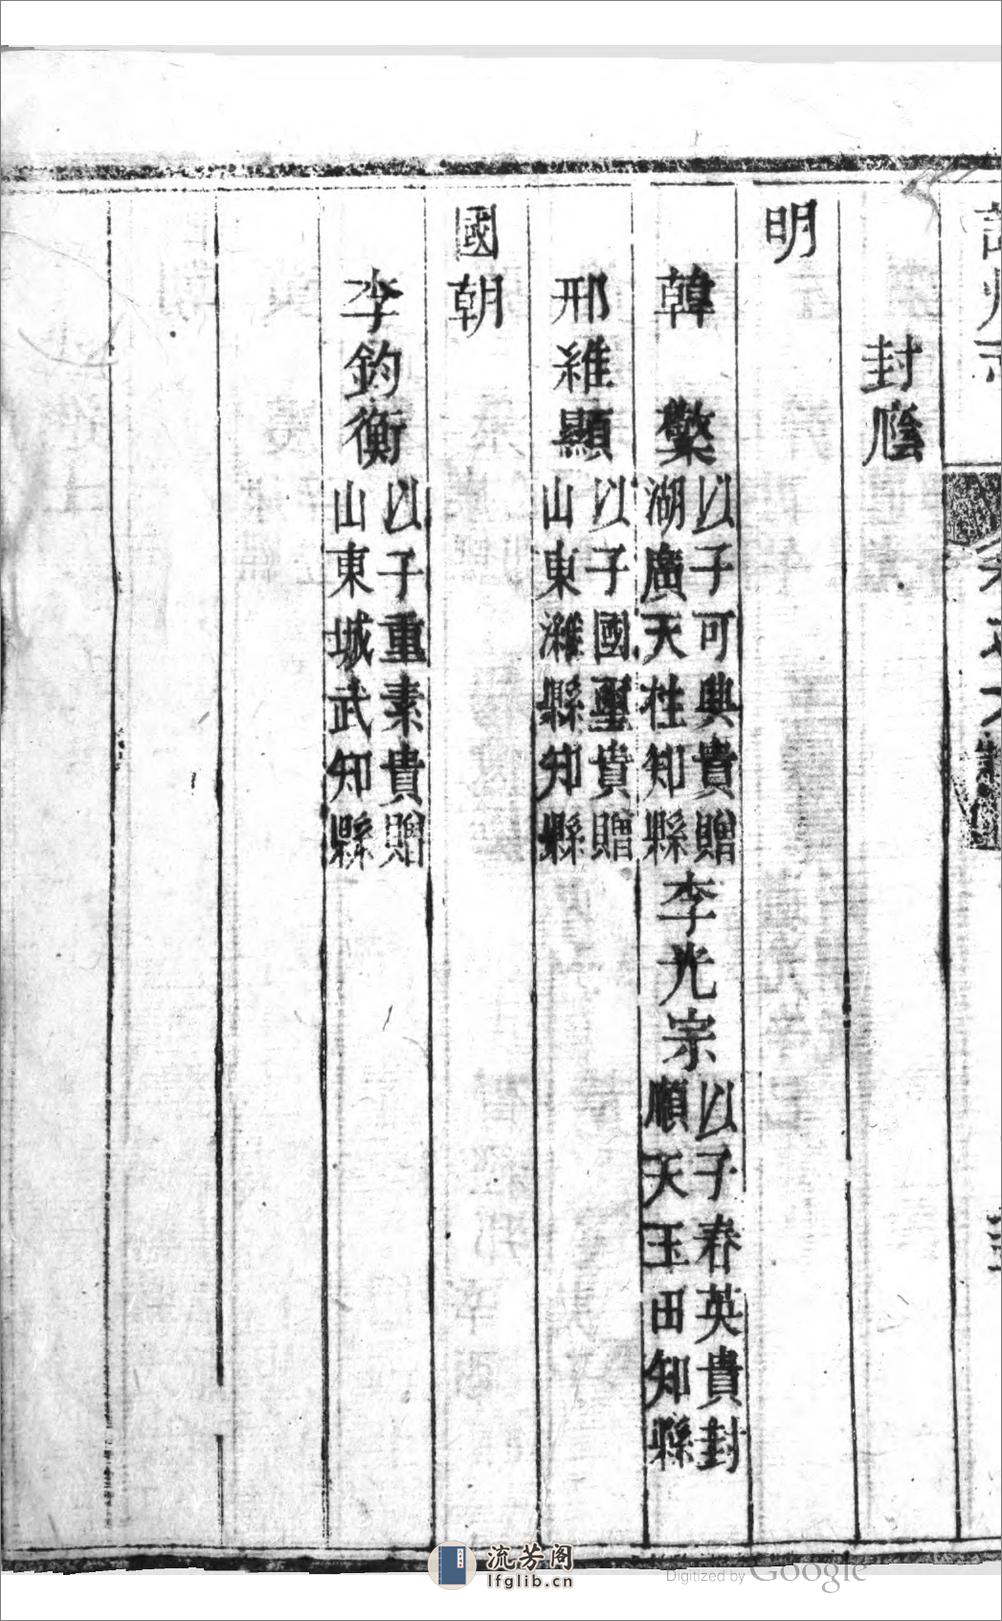 封廕
明
韓 檠以子可典貴贈湖廣天柱知縣李光宗以子春英貴封順天玉田知縣
邢維顯以子國璽貴贈山東濰縣知縣
國朝
李鈞衡以子重素貴贈山東城武知縣
流芳阁
lfglib.cn
Digitized by Google